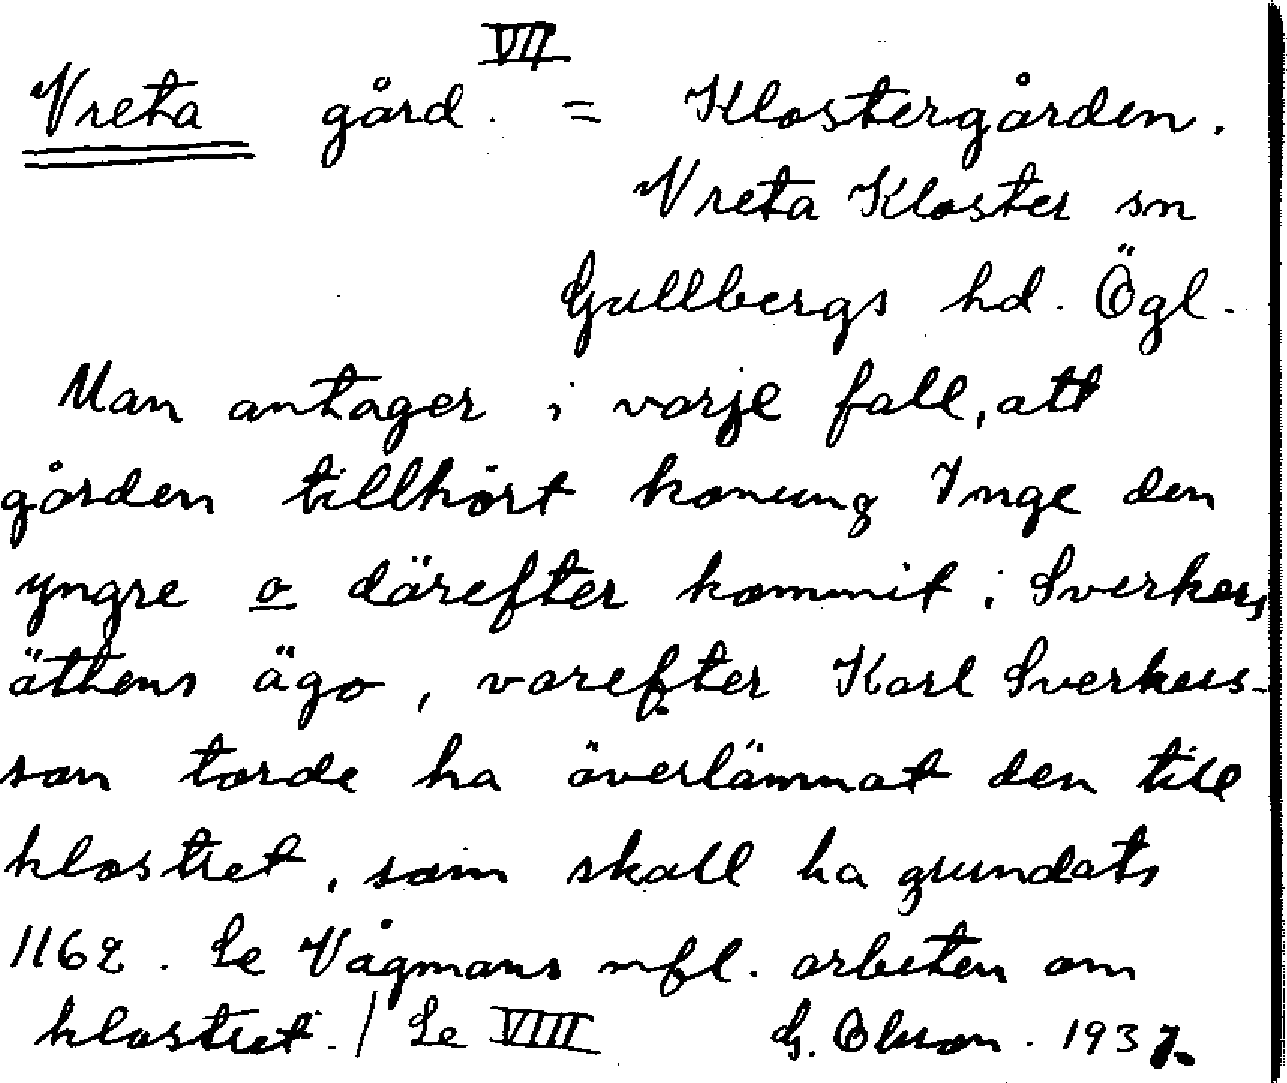 VII
Vreta gård. = Klostergården.
Vreta Kloster sn
Gullbergs hd. Ögl.
Man antager i varje fall, att
gården tillhört konung Inge den
yngre o därefter kommit i Sverkers
ättens ägo, varefter Karl Sverkers-
son torde ha överlämnat den till
klostret, som skall ha grundats
1162. Se Vågmans mfl. arbeten om
klostret. / Se VIII G. Olsson. 1937.